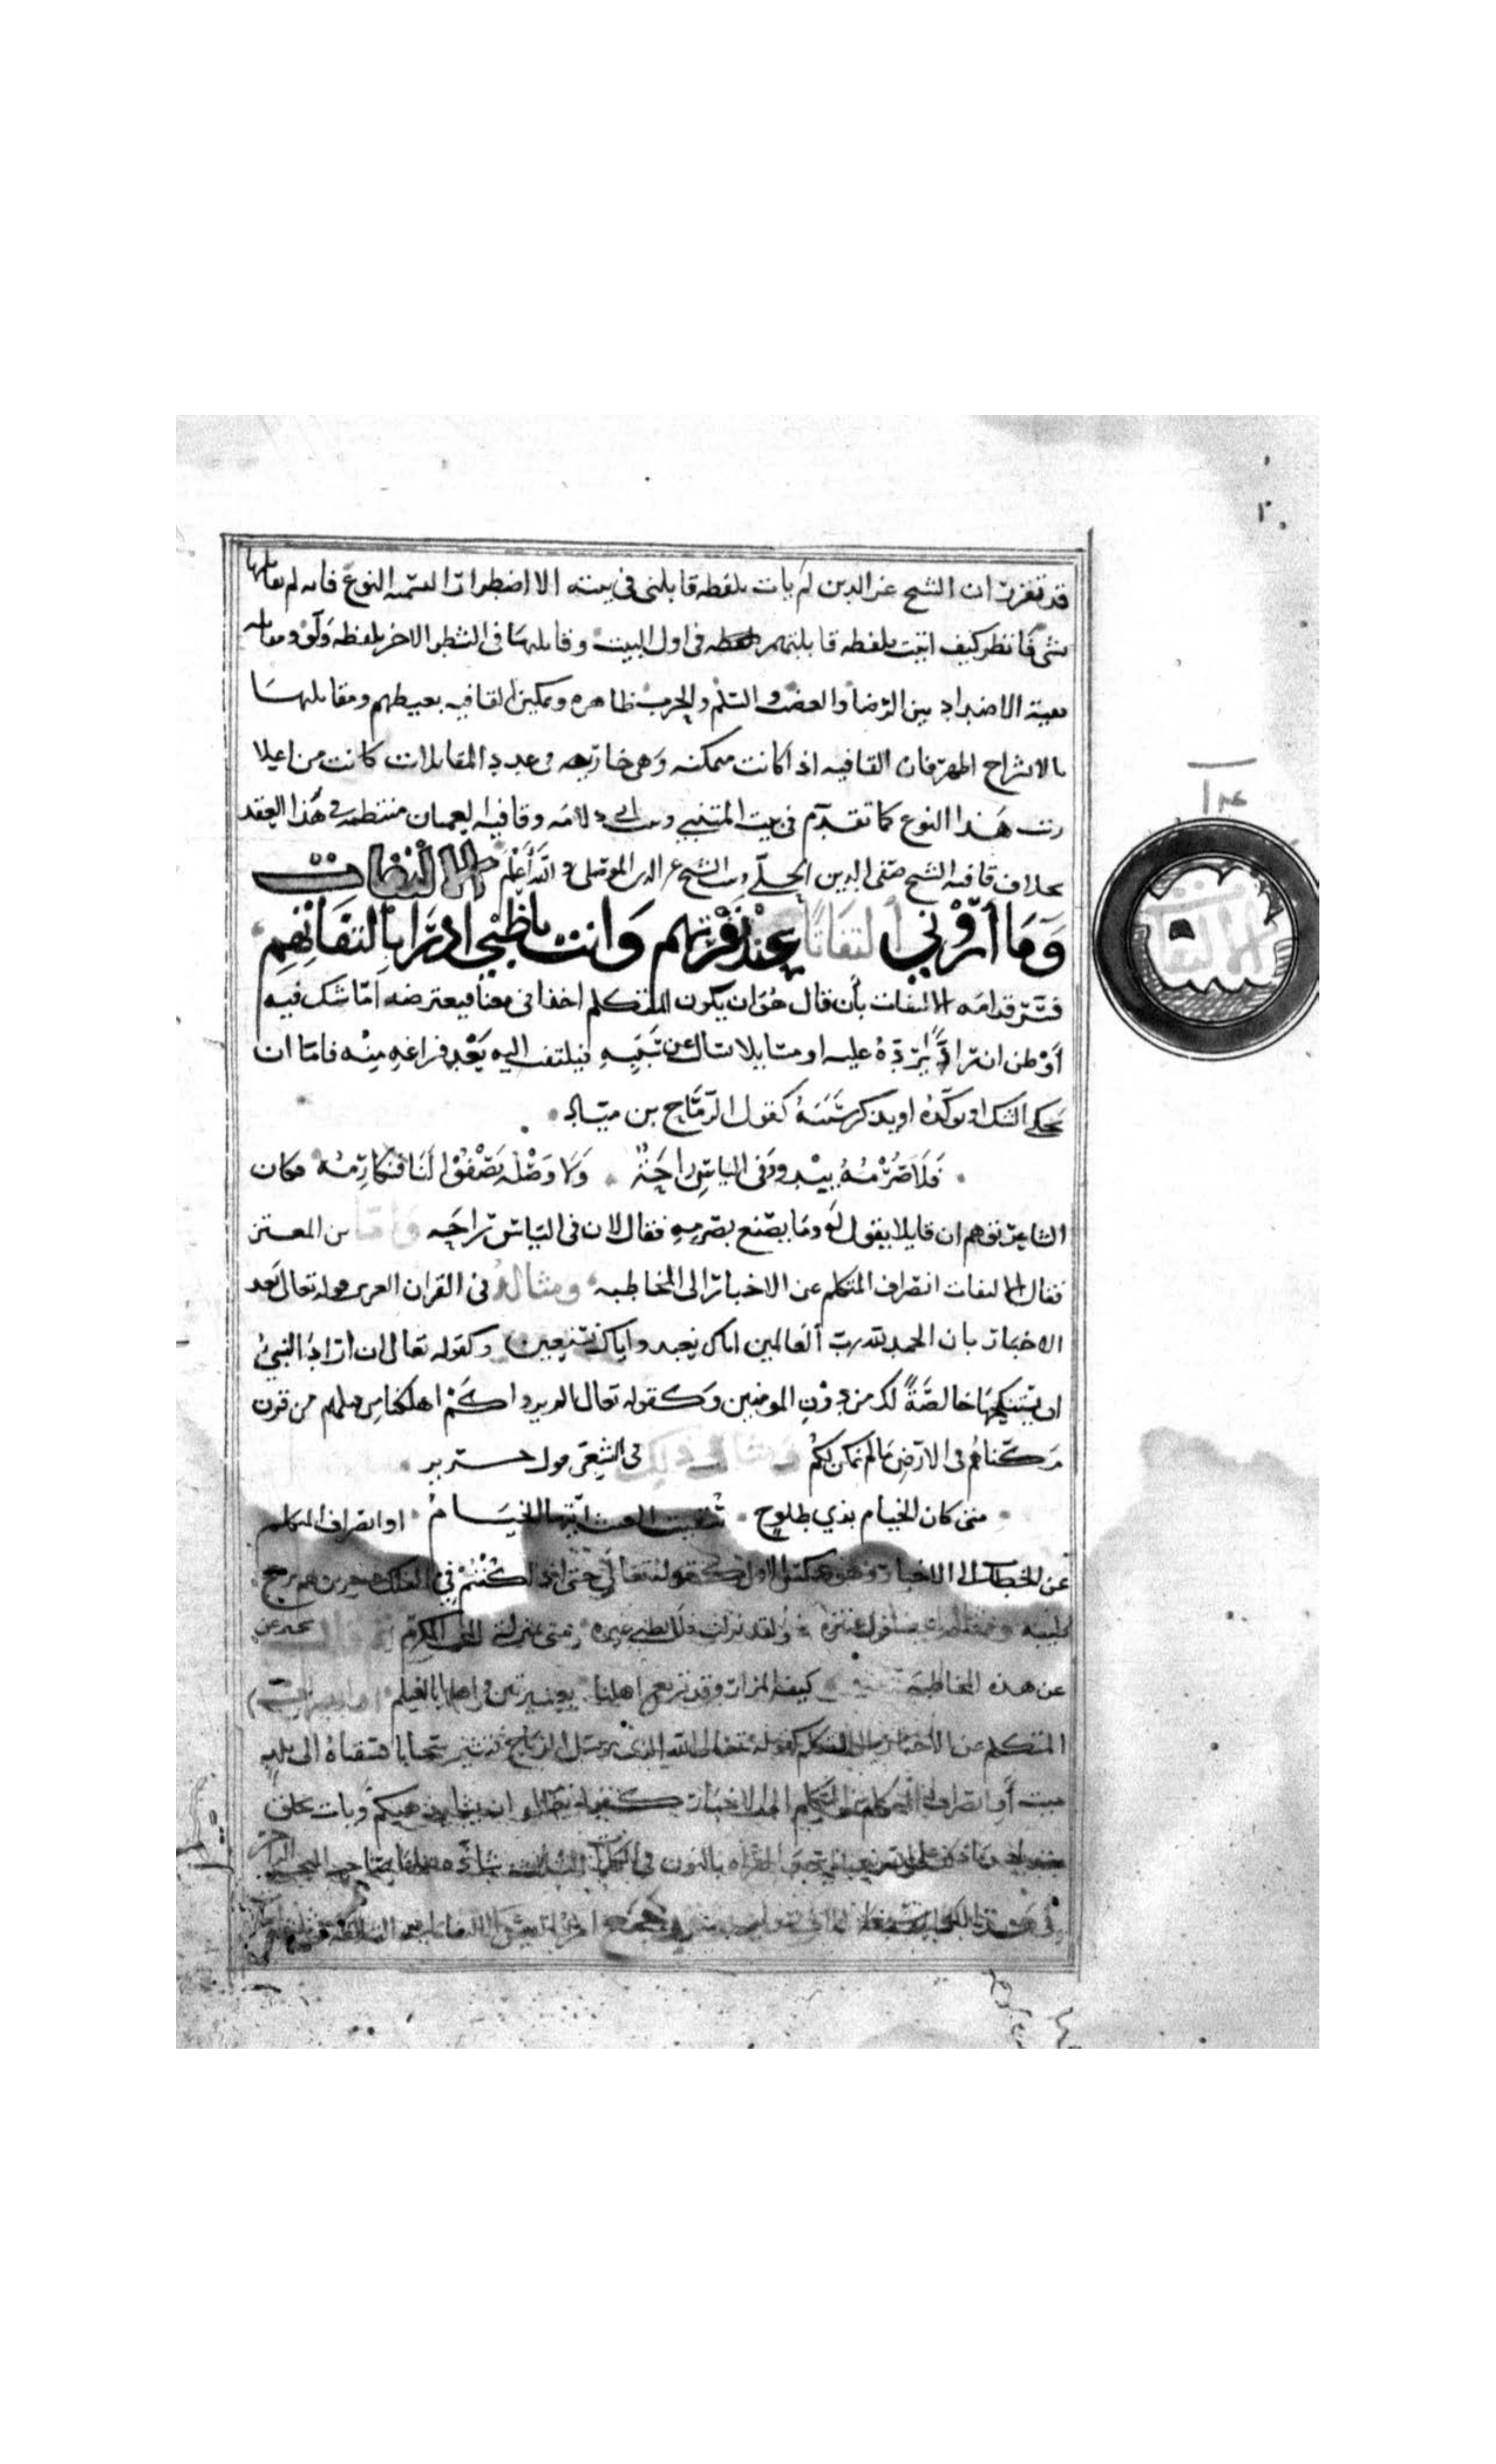 قد تقرر ان الشيخ عز الدين لم يات بلفظه قابلنى فى بيته الا اضطرارا لتسميه النوع فانه لم يقابلها
بشى فانظر كيف اتيت بلفظه قابلتهم فى اول البيت وقابلتها فى الشطر الاخر بلفظه ولوا ومقابله
بقية الاضداد بين الرضا والغضب والسلم والحرب ظاهره وتمكين القافيه بغيظهم ومقابلتها
بالانشراح اظهر فان القافيه اذا كانت ممكنه وهى خارجه فى عدد المقابلات كانت من اعلا
رتب هذا النوع كما تقدم فى بيت المتنبي وبيت ابي دلامه وقافية العميان منتظمه فى هذا العقد
بخلاف قافية الشيخ صفى الدين الحلى وبيت الشيخ عز الدين الموصلى والله أعلم الالتفات
وَمَا أروْنِي التفاتًا عِنْدَ نَفْرَتهم وَانت يا ظبْي ادرَا بِالتفَاتِهِمِ
فسّر قدامه الالتفات بأن قال هو ان يكون المتكلم اخذا فى معنا فيعترضه امّا شك فيه
أوْ ظن ان رادًّا يرُدّهُ عليه او سايلا ساله عن سَبَبِهِ فيلتفت اليه بَعْد فراغهِ مِنْه فامّا ان
يجلي الشك او يوكّدهُ او يذكر سَبَبَهُ كقول الرمّاح بن ميّاده
فَلاَ صُرْمُهُ يبْدو وفى الياسِ راحَةٌ وَلا وَصْلُهُ يَصْفُوْ لَنَا فنكارِمُهْ فكان
الشاعر توهم ان قايلا يقول لهُ وما يصنع بصَرمِهِ فقال لان فى الياس راحَه وامّا ابن المعتز
فقال الالتفات انصراف المتكلم عن الاخبار الى المخاطبه ومثالهُ فى القران العزيز قوله تعالى بَعد
الاخبار بان الحمد لله رب العالمين اياك نعبد واياك نستعين وكقوله تعالى ان اراد النبيُ
ان يَستنكِحهَا خالصَةً لك من دونِ المومنين وكقوله تعالى الم يروا كَمْ اهلكنا من قبلهم من قرن
مَكّناهُم فى الارْضِ مَا لم نمكن لكُمْ ومثال ذلك فى الشِعْر قول جرير
متى كان الخيام بذي طلوح سُقيتِ الغيث ايّتها الخيَامُ او انصراف المتكلم
عن الخطاب الى الاخبار وهو عكس الاول كقوله تعالى حتى اذا كُنْتُمْ فِي الفلك وجرين بهم بريح
طيبه ومثاله قول عنتره وَلقد نزلت فلا تظني غيره مني بمنزلة المحب المكرم ثم قال يخبر عن
عن هذه المخاطبة كيف المزار وقد تربع اهلها بعنيزتين واهلنا بالغيلم او انصراف
المتكلم من الاخبار الى التكلم كقوله تعالى الله الذى يرسل الرياح فتثير سَحابا فسقناهُ الى بلدٍ
ميت أو انصراف المتكلم من التكلم الى الاخبار كقوله تعالى ان يشا يذهبكم ويات بخلق
الالتفات
١٣